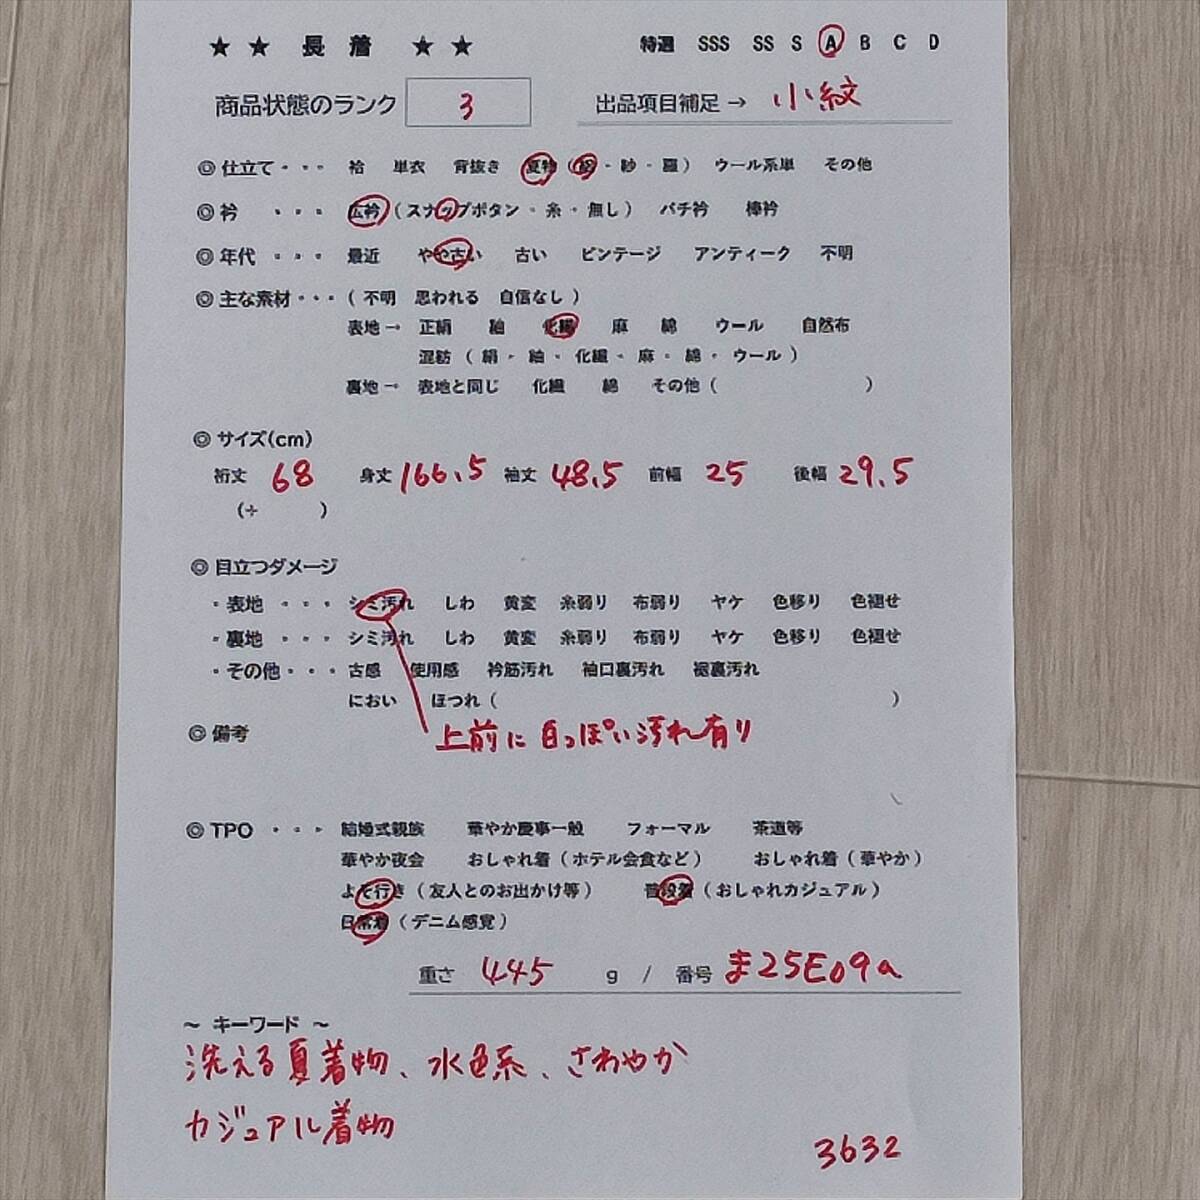 ★ ★ 長 着 ★ ★ 特選 SSS SS S A B C D
商品状態のランク 3 出品項目補足→ 小紋
◎ 仕立て・・・ 袷 単衣 背抜き 夏物 (絽・紗・羅) ウール系単 その他
◎ 衿 ・・・ 広衿 (スナップボタン・糸・無し) バチ衿 棒衿
◎ 年代 ・・・ 最近 やや古い 古い ビンテージ アンティーク 不明
◎ 主な素材・・・ (不明 思われる 自信なし)
表地→ 正絹 紬 化繊 麻 綿 ウール 自然布
混紡 (絹・紬・化繊・麻・綿・ウール)
裏地→ 表地と同じ 化繊 綿 その他 ( )
◎ サイズ(cm)
裄丈 68 身丈 166.5 袖丈 48.5 前幅 25 後幅 29.5
(÷ )
◎ 目立つダメージ
・表地 ・・・ シミ汚れ しわ 黄変 糸弱り 布弱り ヤケ 色移り 色褪せ
・裏地 ・・・ シミ汚れ しわ 黄変 糸弱り 布弱り ヤケ 色移り 色褪せ
・その他・・・ 古感 使用感 衿筋汚れ 袖口裏汚れ 裾裏汚れ
におい ほつれ ( )
◎ 備考 上前に白っぽい汚れ有り
◎ TPO ・・・ 結婚式親族 華やか慶事一般 フォーマル 茶道等
華やか夜会 おしゃれ着 (ホテル会食など) おしゃれ着 (華やか)
よそ行き (友人とのお出かけ等) 普段着 (おしゃれカジュアル)
日常着 (デニム感覚)
重さ 445 g / 番号 ま25E09a
〜 キーワード 〜
洗える夏着物、水色系、さわやか
カジュアル着物
3632